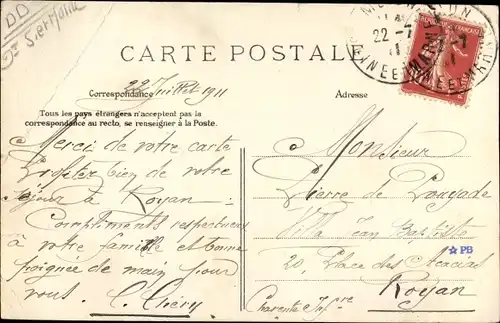 DD
St Seine
CARTE POSTALE
22-7
MARNE
SEINE-ET-MARNE
REPUBLIQUE FRANÇAISE
Correspondance 22 Juillet 1911
Adresse
Tous les pays étrangers n'acceptent pas la
correspondance au recto, se renseigner à la Poste.
Merci de votre carte
Profitez bien de votre
séjour à Royan :
Compliments respectueux
à votre famille et bonne
poignée de main pour
vous.
Monsieur
Pierre de
Villa Jean Baptiste
PB
20, Place des Acacias
Royan
Charente Infre